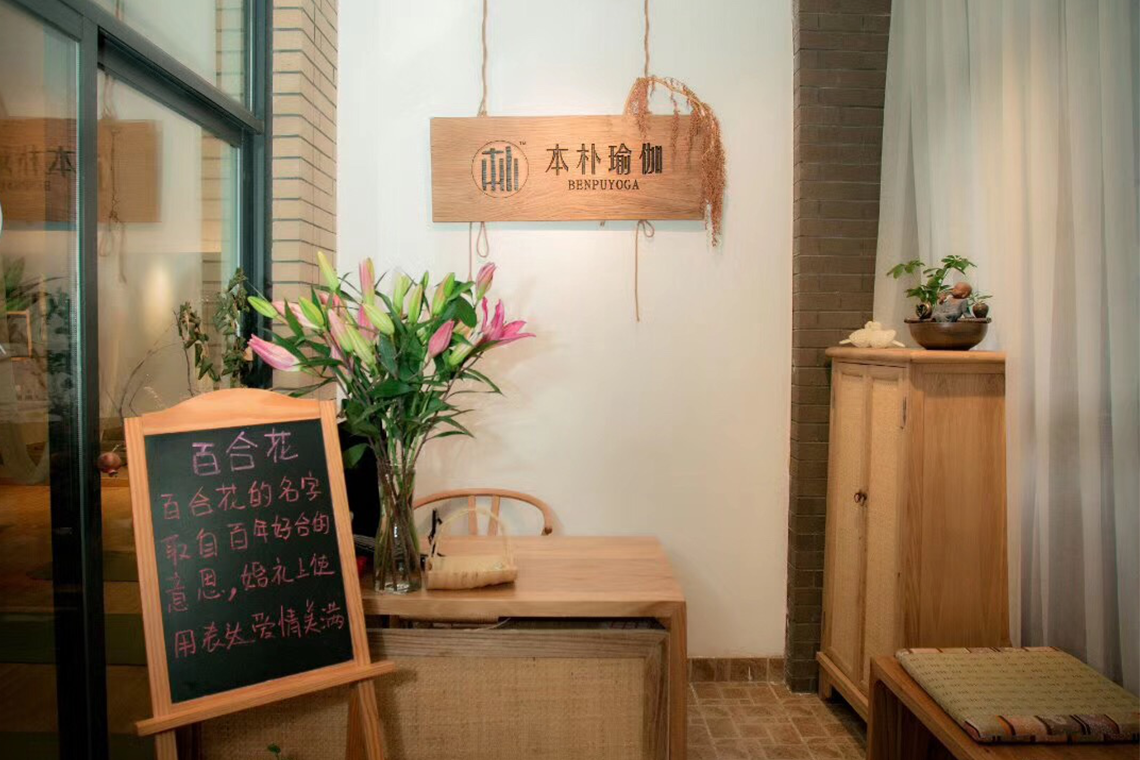 朴
TM
本朴瑜伽
BENPUYOGA
百合花
百合花的名字
取自百年好合的
意思,婚礼上使
用表达爱情美满